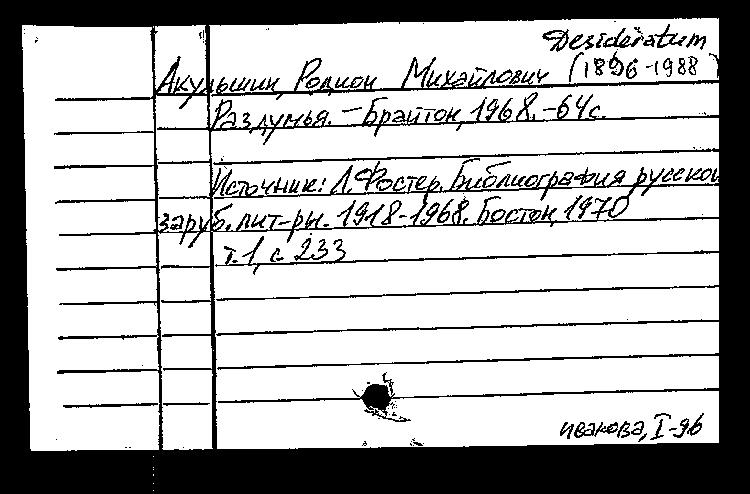 Desideratum
Акульшин, Родион Михайлович (1896-1988)
Раздумья. - Брайтон, 1968. - 64 с.
Источник: Л. Фостер. Библиография русской
заруб. лит-ры. 1918-1968. Бостон, 1970
т. 1, с. 233
иванова, I-96